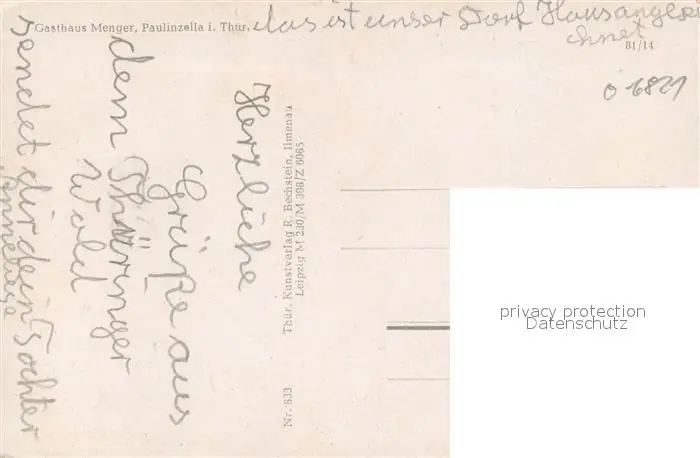 Gasthaus Menger, Paulinzella i. Thür.
das ist unser Dorf Haus angezei
chnet
81/14
o 6821
Herzliche
Grüße aus
dem Thüringer
Wald
sendet dir dein Tochter
Anneliese
Nr. 833 Thür. Kunstverlag R. Bechstein, Ilmenau
Leipzig M 230/M 308/Z 6065
privacy protection
Datenschutz